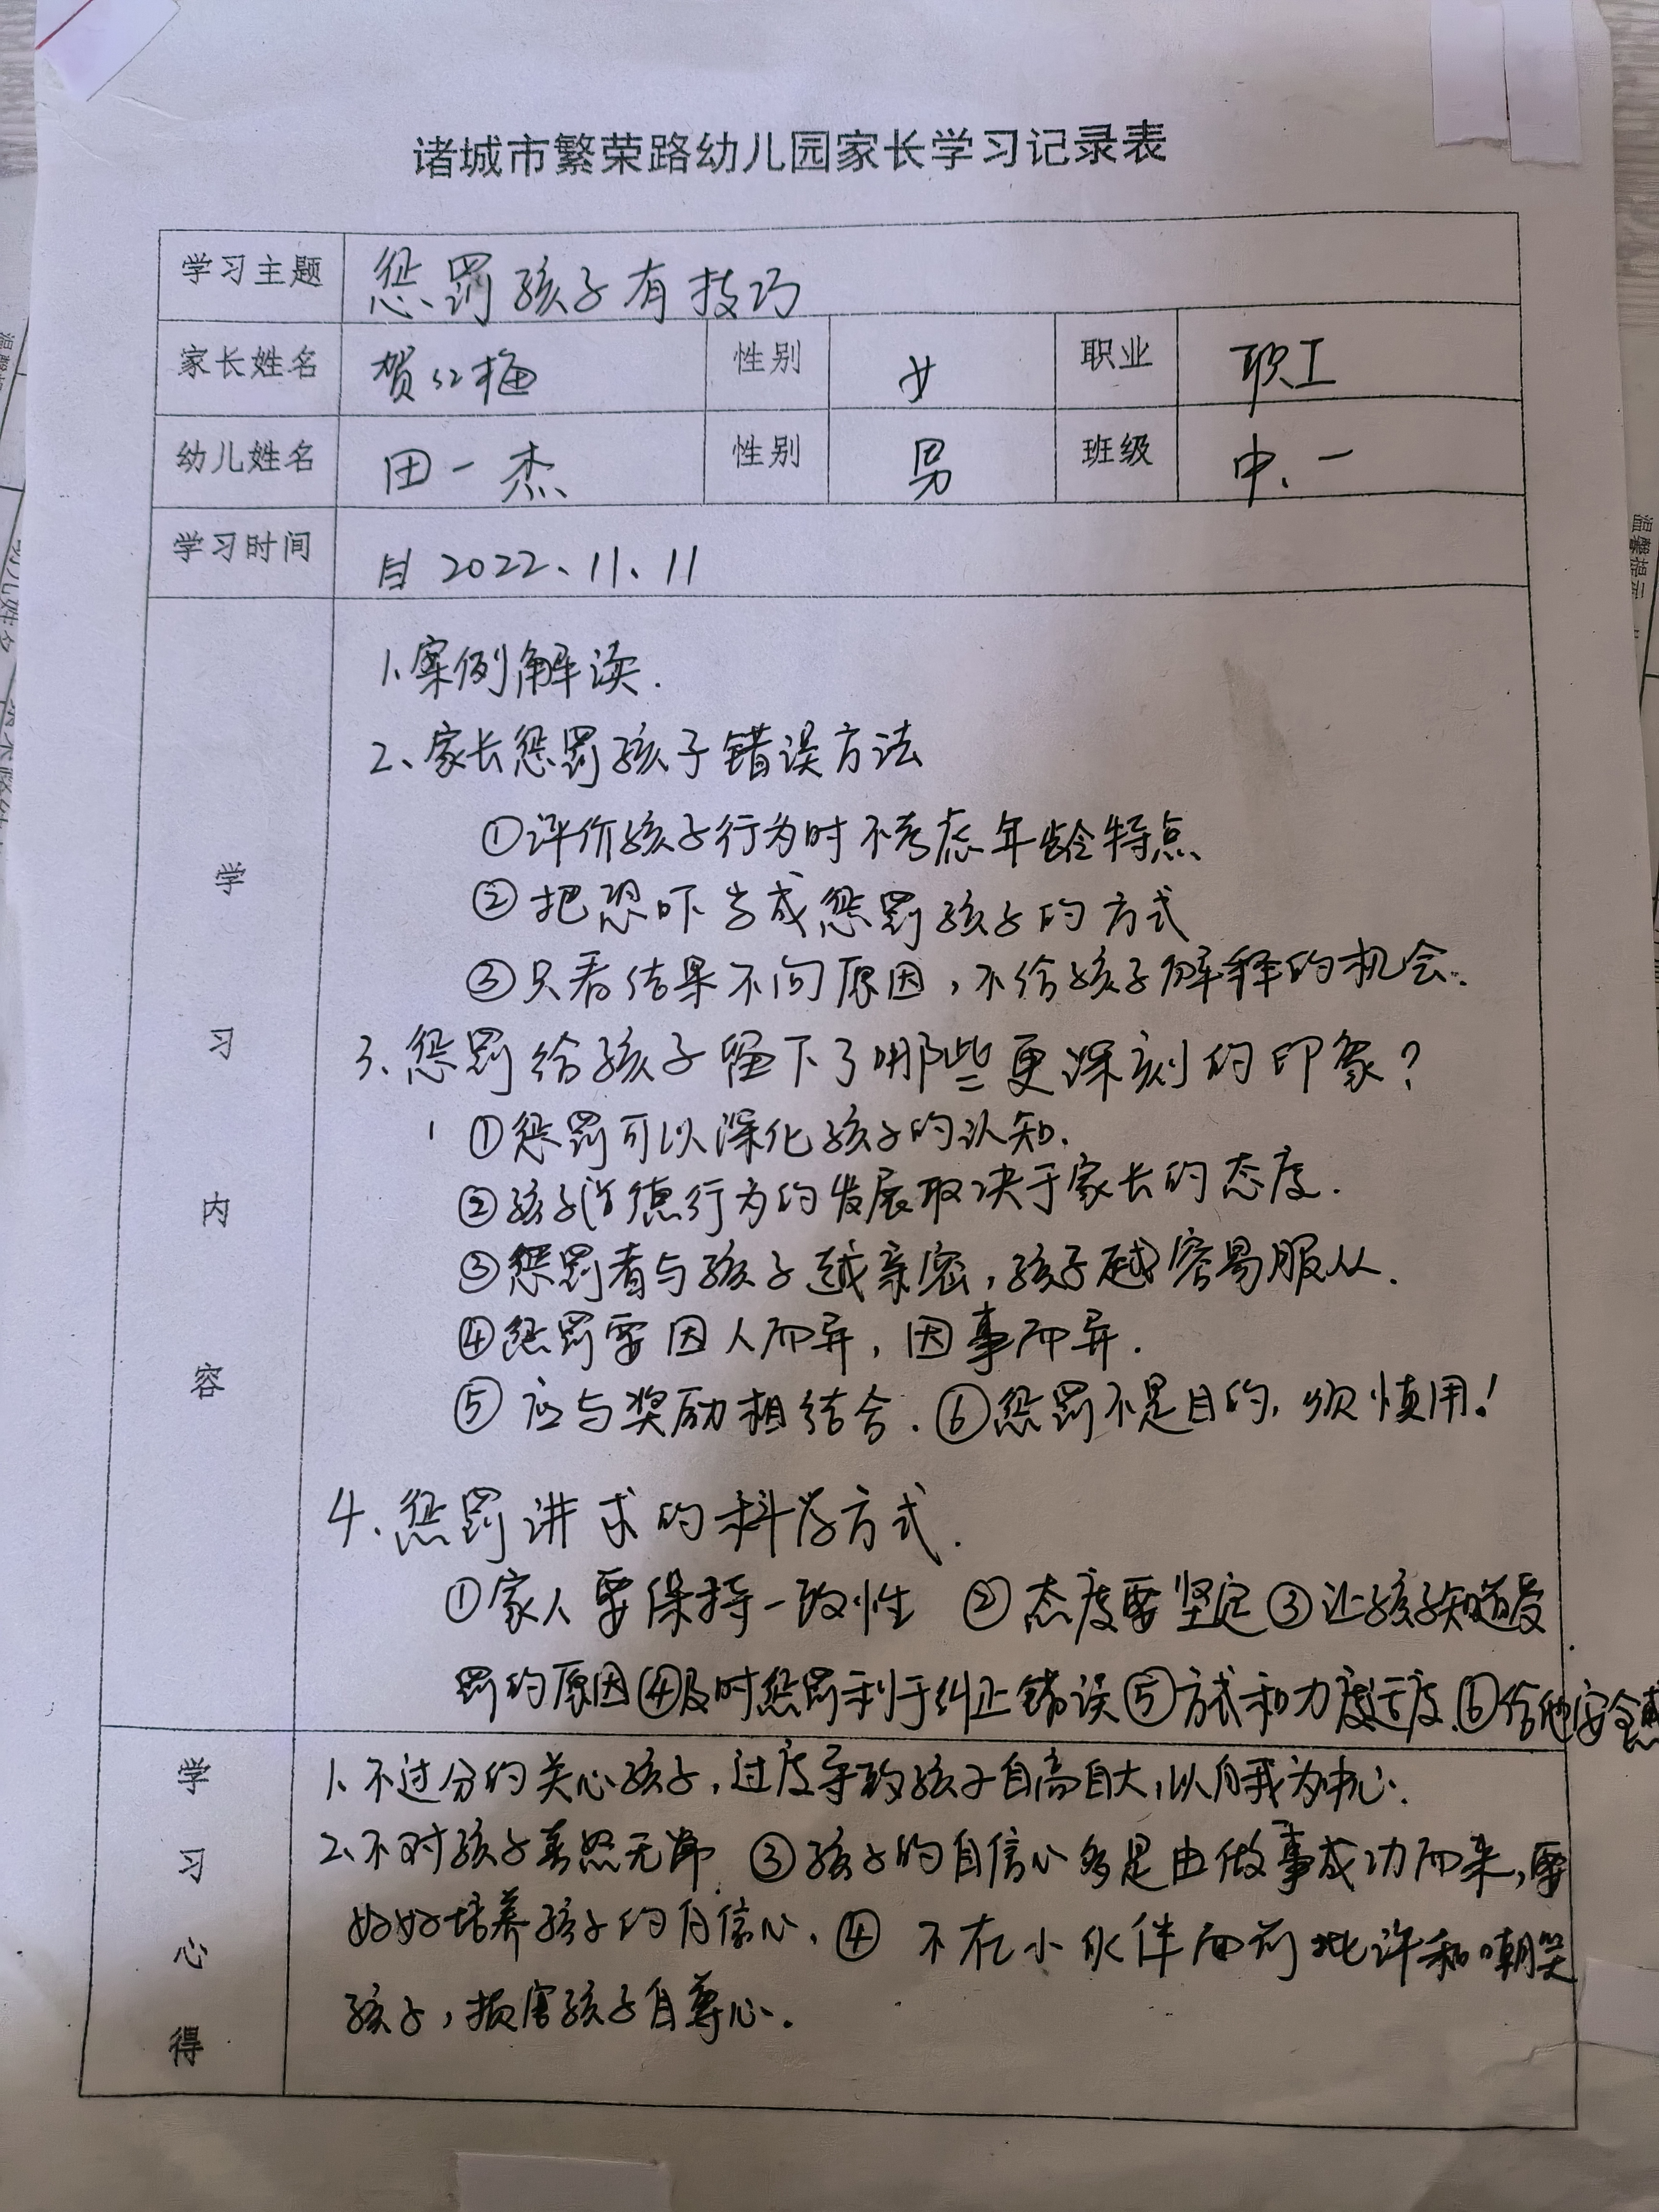 诸城市繁荣路幼儿园家长学习记录表
学习主题 惩罚孩子有技巧
家长姓名 贺红梅 性别 女 职业 职工
幼儿姓名 田一杰 性别 男 班级 中.一
学习时间 2022、11、11
学习内容
1、案例解读.
2、家长惩罚孩子错误方法
①评价孩子行为时不考虑年龄特点
②把恐吓当成惩罚孩子的方式
③只看结果不问原因，不给孩子解释的机会.
3、惩罚给孩子留下了哪些更深刻的印象？
①惩罚可以深化孩子的认知.
②孩子道德行为的发展取决于家长的态度.
③惩罚者与孩子越亲密，孩子越容易服从.
④惩罚要因人而异，因事而异.
⑤应与奖励相结合.⑥惩罚不是目的，须慎用！
4、惩罚讲求的科学方式.
①家人要保持一致性 ②态度要坚定③让孩子知道受
罚的原因④及时惩罚利于纠正错误⑤方式和力度适度.⑥给他安全感
学习心得
1、不过分的关心孩子，过度导致孩子自高自大，以自我为中心.
2、不对孩子喜怒无常 ③孩子的自信心多是由做事成功而来，要
好好培养孩子的自信心.④ 不在小伙伴面前批评和嘲笑
孩子，损害孩子自尊心.
温馨提示